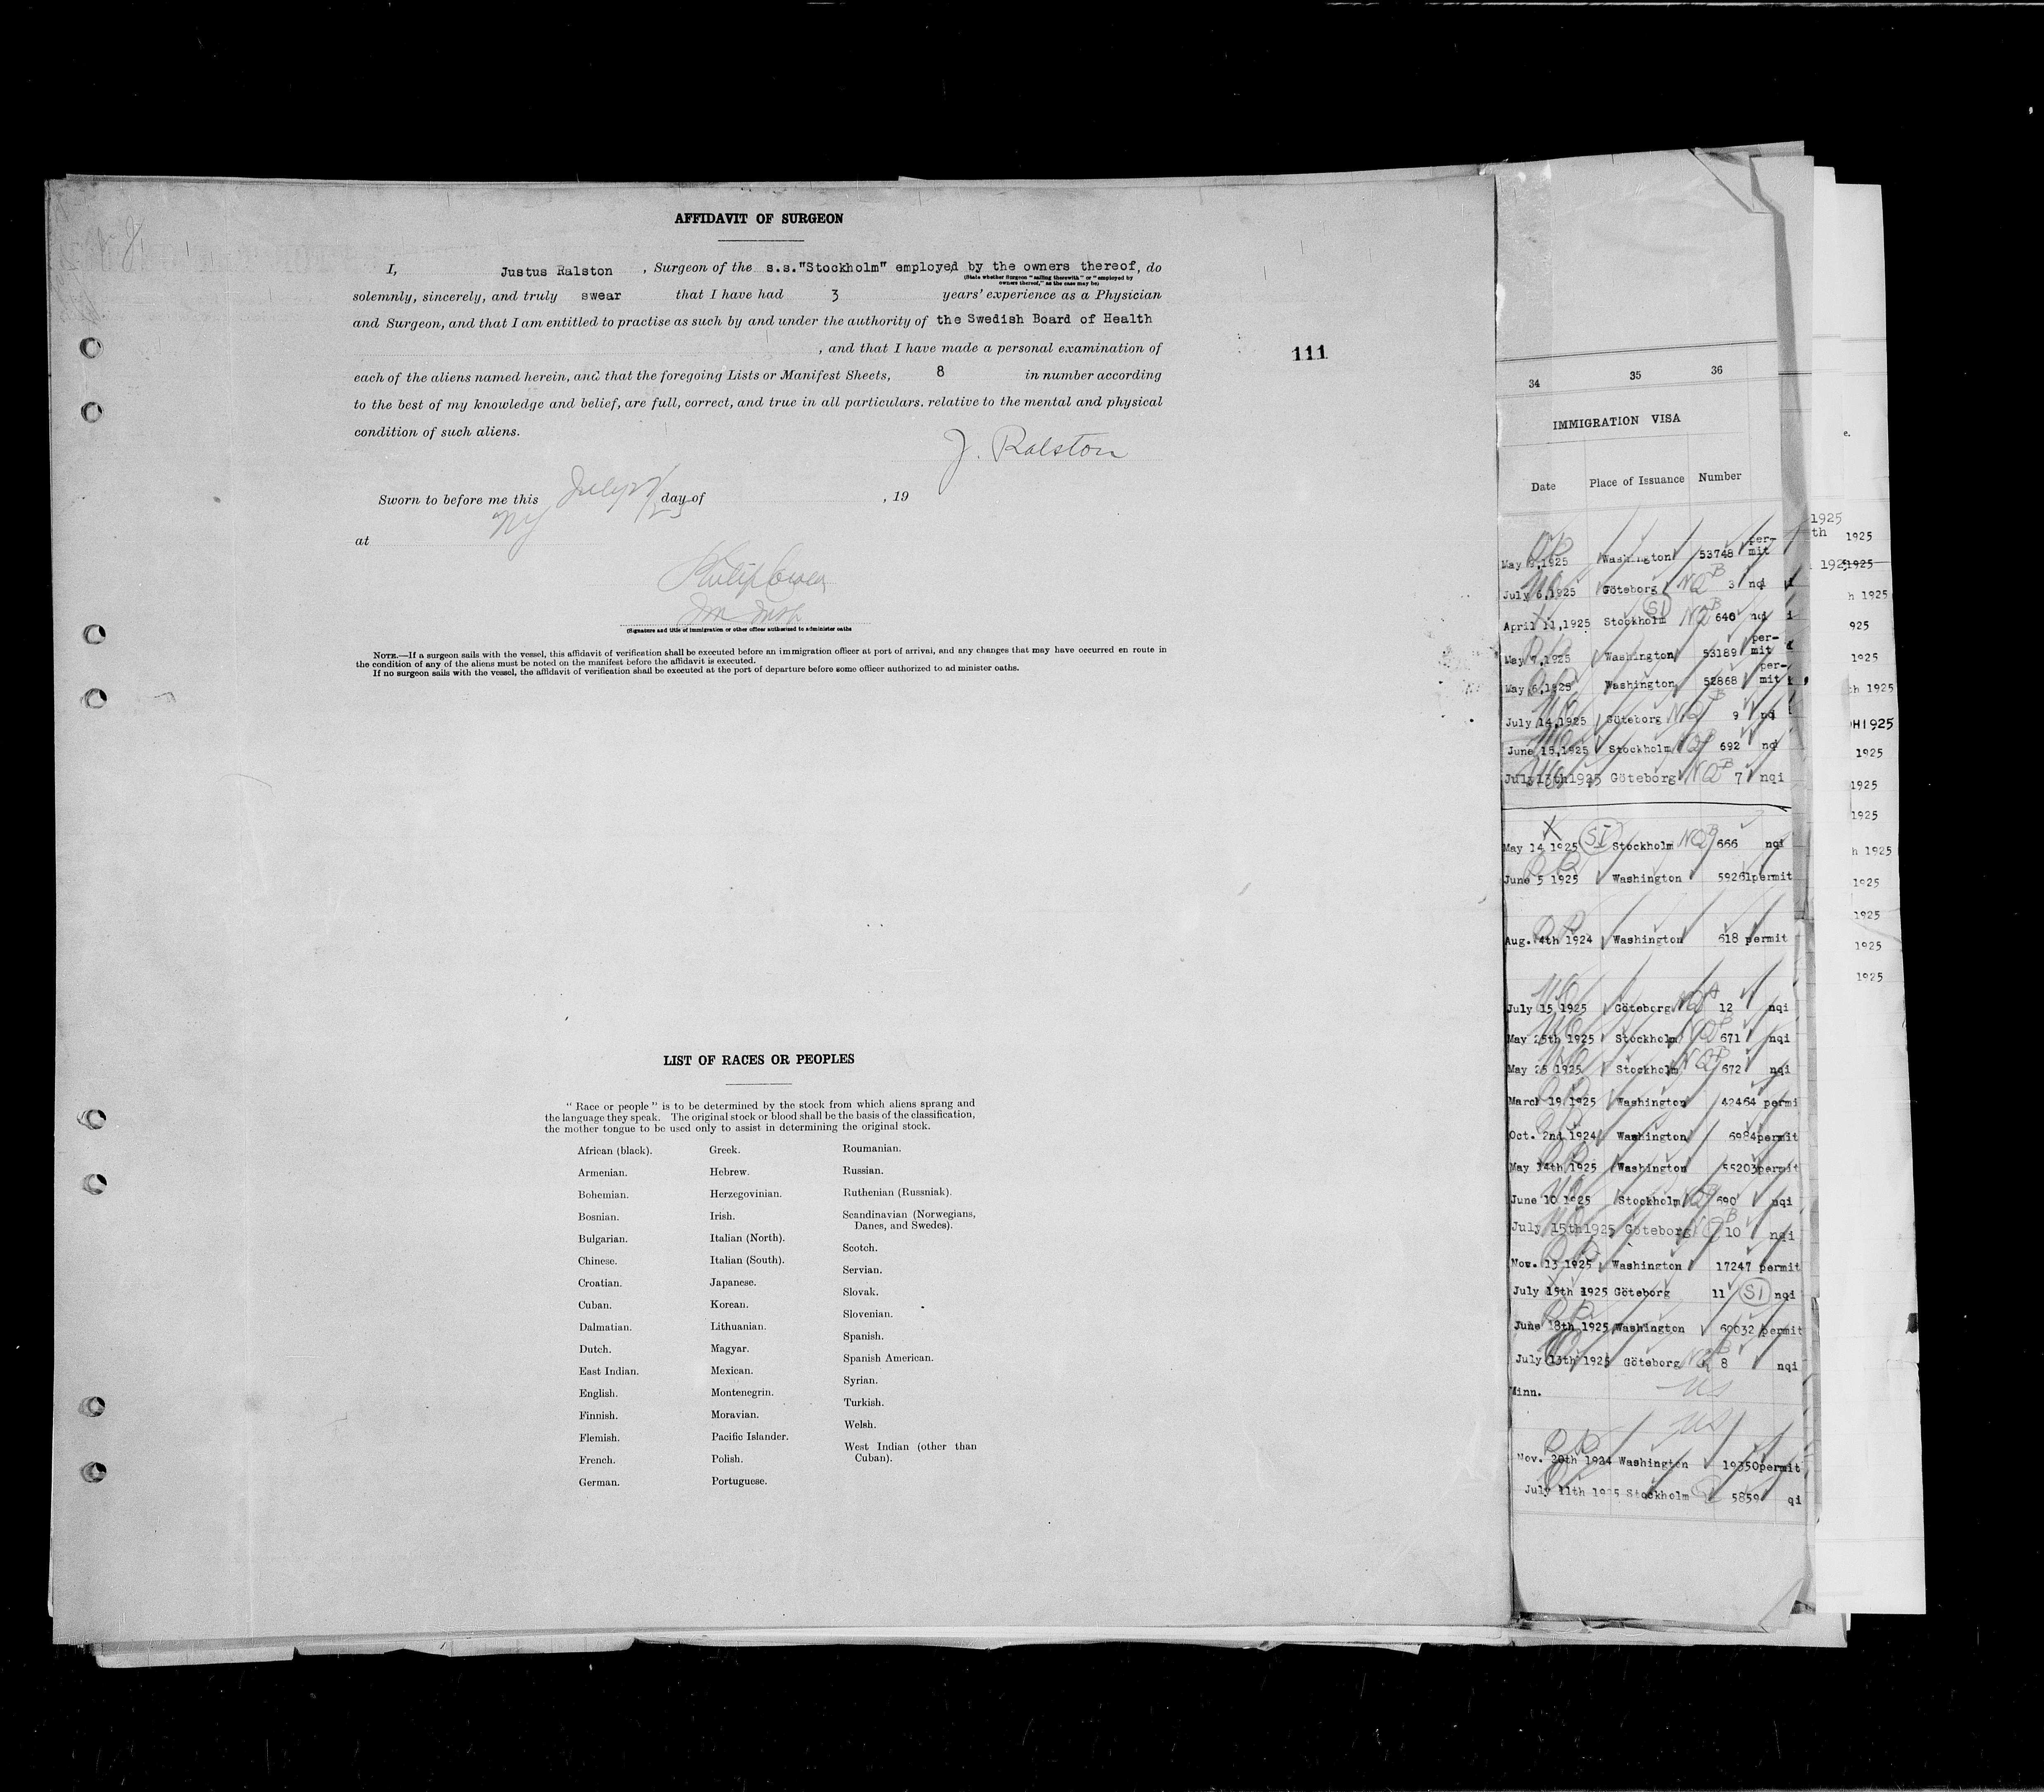 AFFIDAVIT OF SURGEON
I, Justus Ralston , Surgeon of the s.s."Stockholm" employed by the owners thereof, do
(State whether Surgeon "sailing therewith" or "employed by
owners thereof," as the case may be)
solemnly, sincerely, and truly swear that I have had 3 years' experience as a Physician
and Surgeon, and that I am entitled to practise as such by and under the authority of the Swedish Board of Health
, and that I have made a personal examination of
111
each of the aliens named herein, and that the foregoing Lists or Manifest Sheets, 8 in number according
to the best of my knowledge and belief, are full, correct, and true in all particulars. relative to the mental and physical
condition of such aliens.
J. Ralston
Sworn to before me this July 27 day of , 19
at NY
(Signature and title of immigration or other officer authorized to administer oaths
NOTE.—If a surgeon sails with the vessel, this affidavit of verification shall be executed before an immigration officer at port of arrival, and any changes that may have occurred en route in
the condition of any of the aliens must be noted on the manifest before the affidavit is executed.
If no surgeon sails with the vessel, the affidavit of verification shall be executed at the port of departure before some officer authorized to ad minister oaths.
LIST OF RACES OR PEOPLES
"Race or people" is to be determined by the stock from which aliens sprang and
the language they speak. The original stock or blood shall be the basis of the classification,
the mother tongue to be used only to assist in determining the original stock.
African (black).
Armenian.
Bohemian.
Bosnian.
Bulgarian.
Chinese.
Croatian.
Cuban.
Dalmatian.
Dutch.
East Indian.
English.
Finnish.
Flemish.
French.
German.
Greek.
Hebrew.
Herzegovinian.
Irish.
Italian (North).
Italian (South).
Japanese.
Korean.
Lithuanian.
Magyar.
Mexican.
Montenegrin.
Moravian.
Pacific Islander.
Polish.
Portuguese.
Roumanian.
Russian.
Ruthenian (Russniak).
Scandinavian (Norwegians,
Danes, and Swedes).
Scotch.
Servian.
Slovak.
Slovenian.
Spanish.
Spanish American.
Syrian.
Turkish.
Welsh.
West Indian (other than
Cuban).
34 35 36
IMMIGRATION VISA
Date Place of Issuance Number
May 9,1925 Washington 53748 per-
mit
July 6,1925 Göteborg NQB 3 nqi
SI
April 11,1925 Stockholm NQB 640 nqi
May 7,1925 Washington 53189 per-
mit
May 6,1925 Washington 52868 per-
mit
July 14,1925 Göteborg NQB 9 nqi
June 15,1925 Stockholm NQB 692 nqi
July 13th 1925 Göteborg NQB 7 nqi
May 14 1925 SI Stockholm NQB 666 nqi
June 5 1925 Washington 59261 permit
Aug. 4th 1924 Washington 618 permit
July 15 1925 Göteborg NQA 12 nqi
May 25th 1925 Stockholm NQB 671 nqi
May 25 1925 Stockholm NQB 672 nqi
March 19 1925 Washington 42464 permi
Oct. 2nd 1924 Washington 6984permit
May 14th 1925 Washington 55203permit
June 10 1925 Stockholm NQB 690 nqi
July 15th 1925 Göteborg NQB 10 nqi
Nov. 13 1925 Washington 17247 permit
July 15th 1925 Göteborg 11 SI nqi
June 18th 1925 Washington 60032 permit
July 13th 1925 Göteborg NQB 8 nqi
Minn. US
US
Nov. 20th 1924 Washington 19350permit
July 11th 1925 Stockholm Q 5859 qi
e.
1925
th 1925
1925
h 1925
925
1925
h 1925
H1925
1925
1925
1925
h 1925
1925
1925
1925
1925